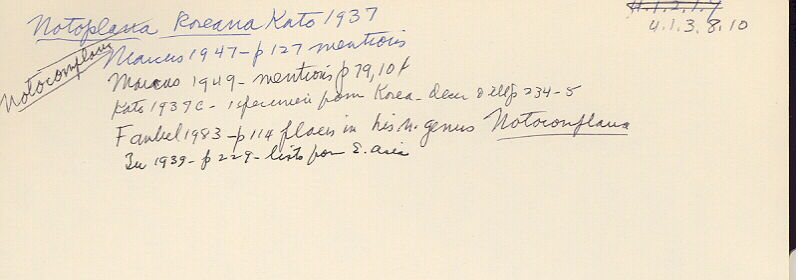 Notoplana koreana Kato 1937
4.1.2.1.4
4.1.3.8.10
Notocomplana
Marcus 1947 - p 127 mentions
Marcus 1949 - mentions p 79, 10f
Kato 1937c - 1 specimen from Korea - descr & ill p 234-5
Faubel 1983 - p 114 places in his n. genus Notocomplana
Bu 1939 - p 229 - lists from E. Asia